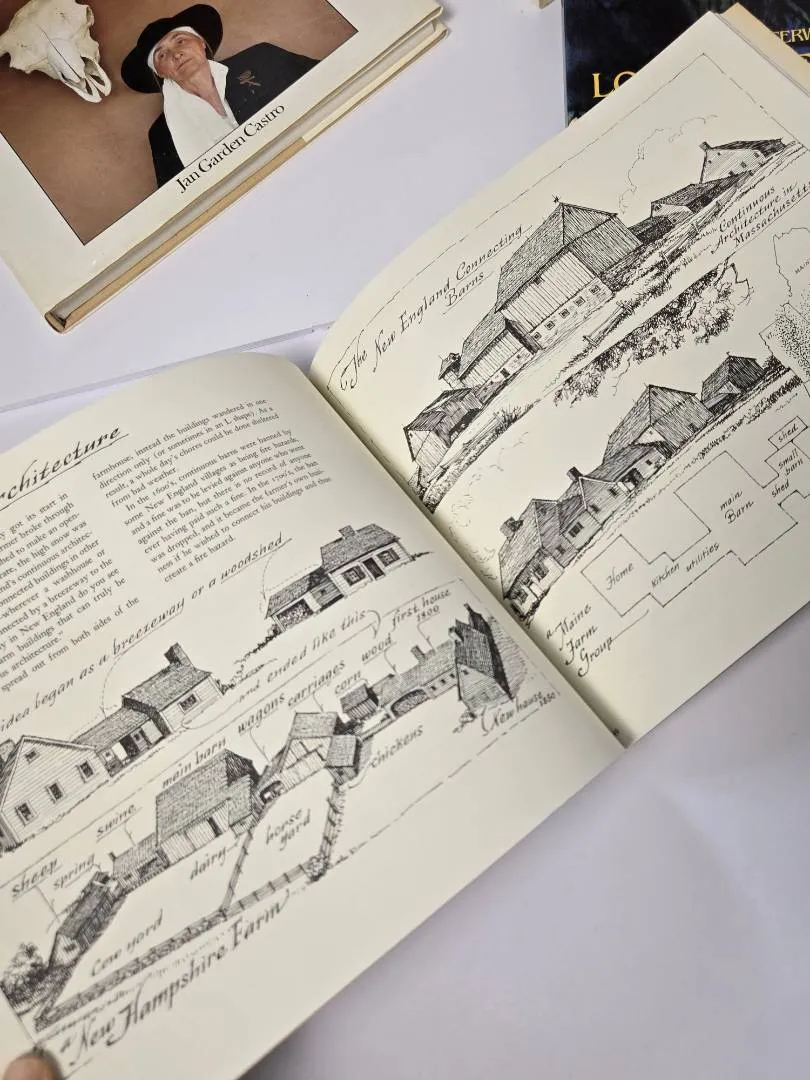 Jan Garden Castro
chitecture
y got its start in
rmer broke through
hed to make an open-
rate, the high snow was
rd's continuous architec-
onnected buildings in other
wherever a washhouse or
nected by a breezeway to the
y in New England do you see
arm buildings that can truly be
us architecture."
spread out from both sides of the
farmhouse; instead the buildings wandered in one
direction only (or sometimes in an L shape). As a
result, a whole day's chores could be done sheltered
from bad weather.
In the 1600's, continuous barns were banned by
some New England villages as being fire hazards,
and a fine was to be levied against anyone who went
against the ban, but there is no record of anyone
ever having paid such a fine. In the 1700's, the ban
was dropped, and it became the farmer's own busi-
ness if he wished to connect his buildings and thus
create a fire hazard.
idea began as a breezeway or a woodshed
and ended like this
first house
1800
wood
corn
carriages
wagons
main barn
swine
spring
sheep
New house
1830
chickens
horse
yard
dairy
Cow yard
a New Hampshire Farm
The New England Connecting
Barns
Continuous
Architecture in
Massachusetts
shed
small
barn
shed
main
Barn
utilities
Kitchen
Home
a Maine
Farm
Group